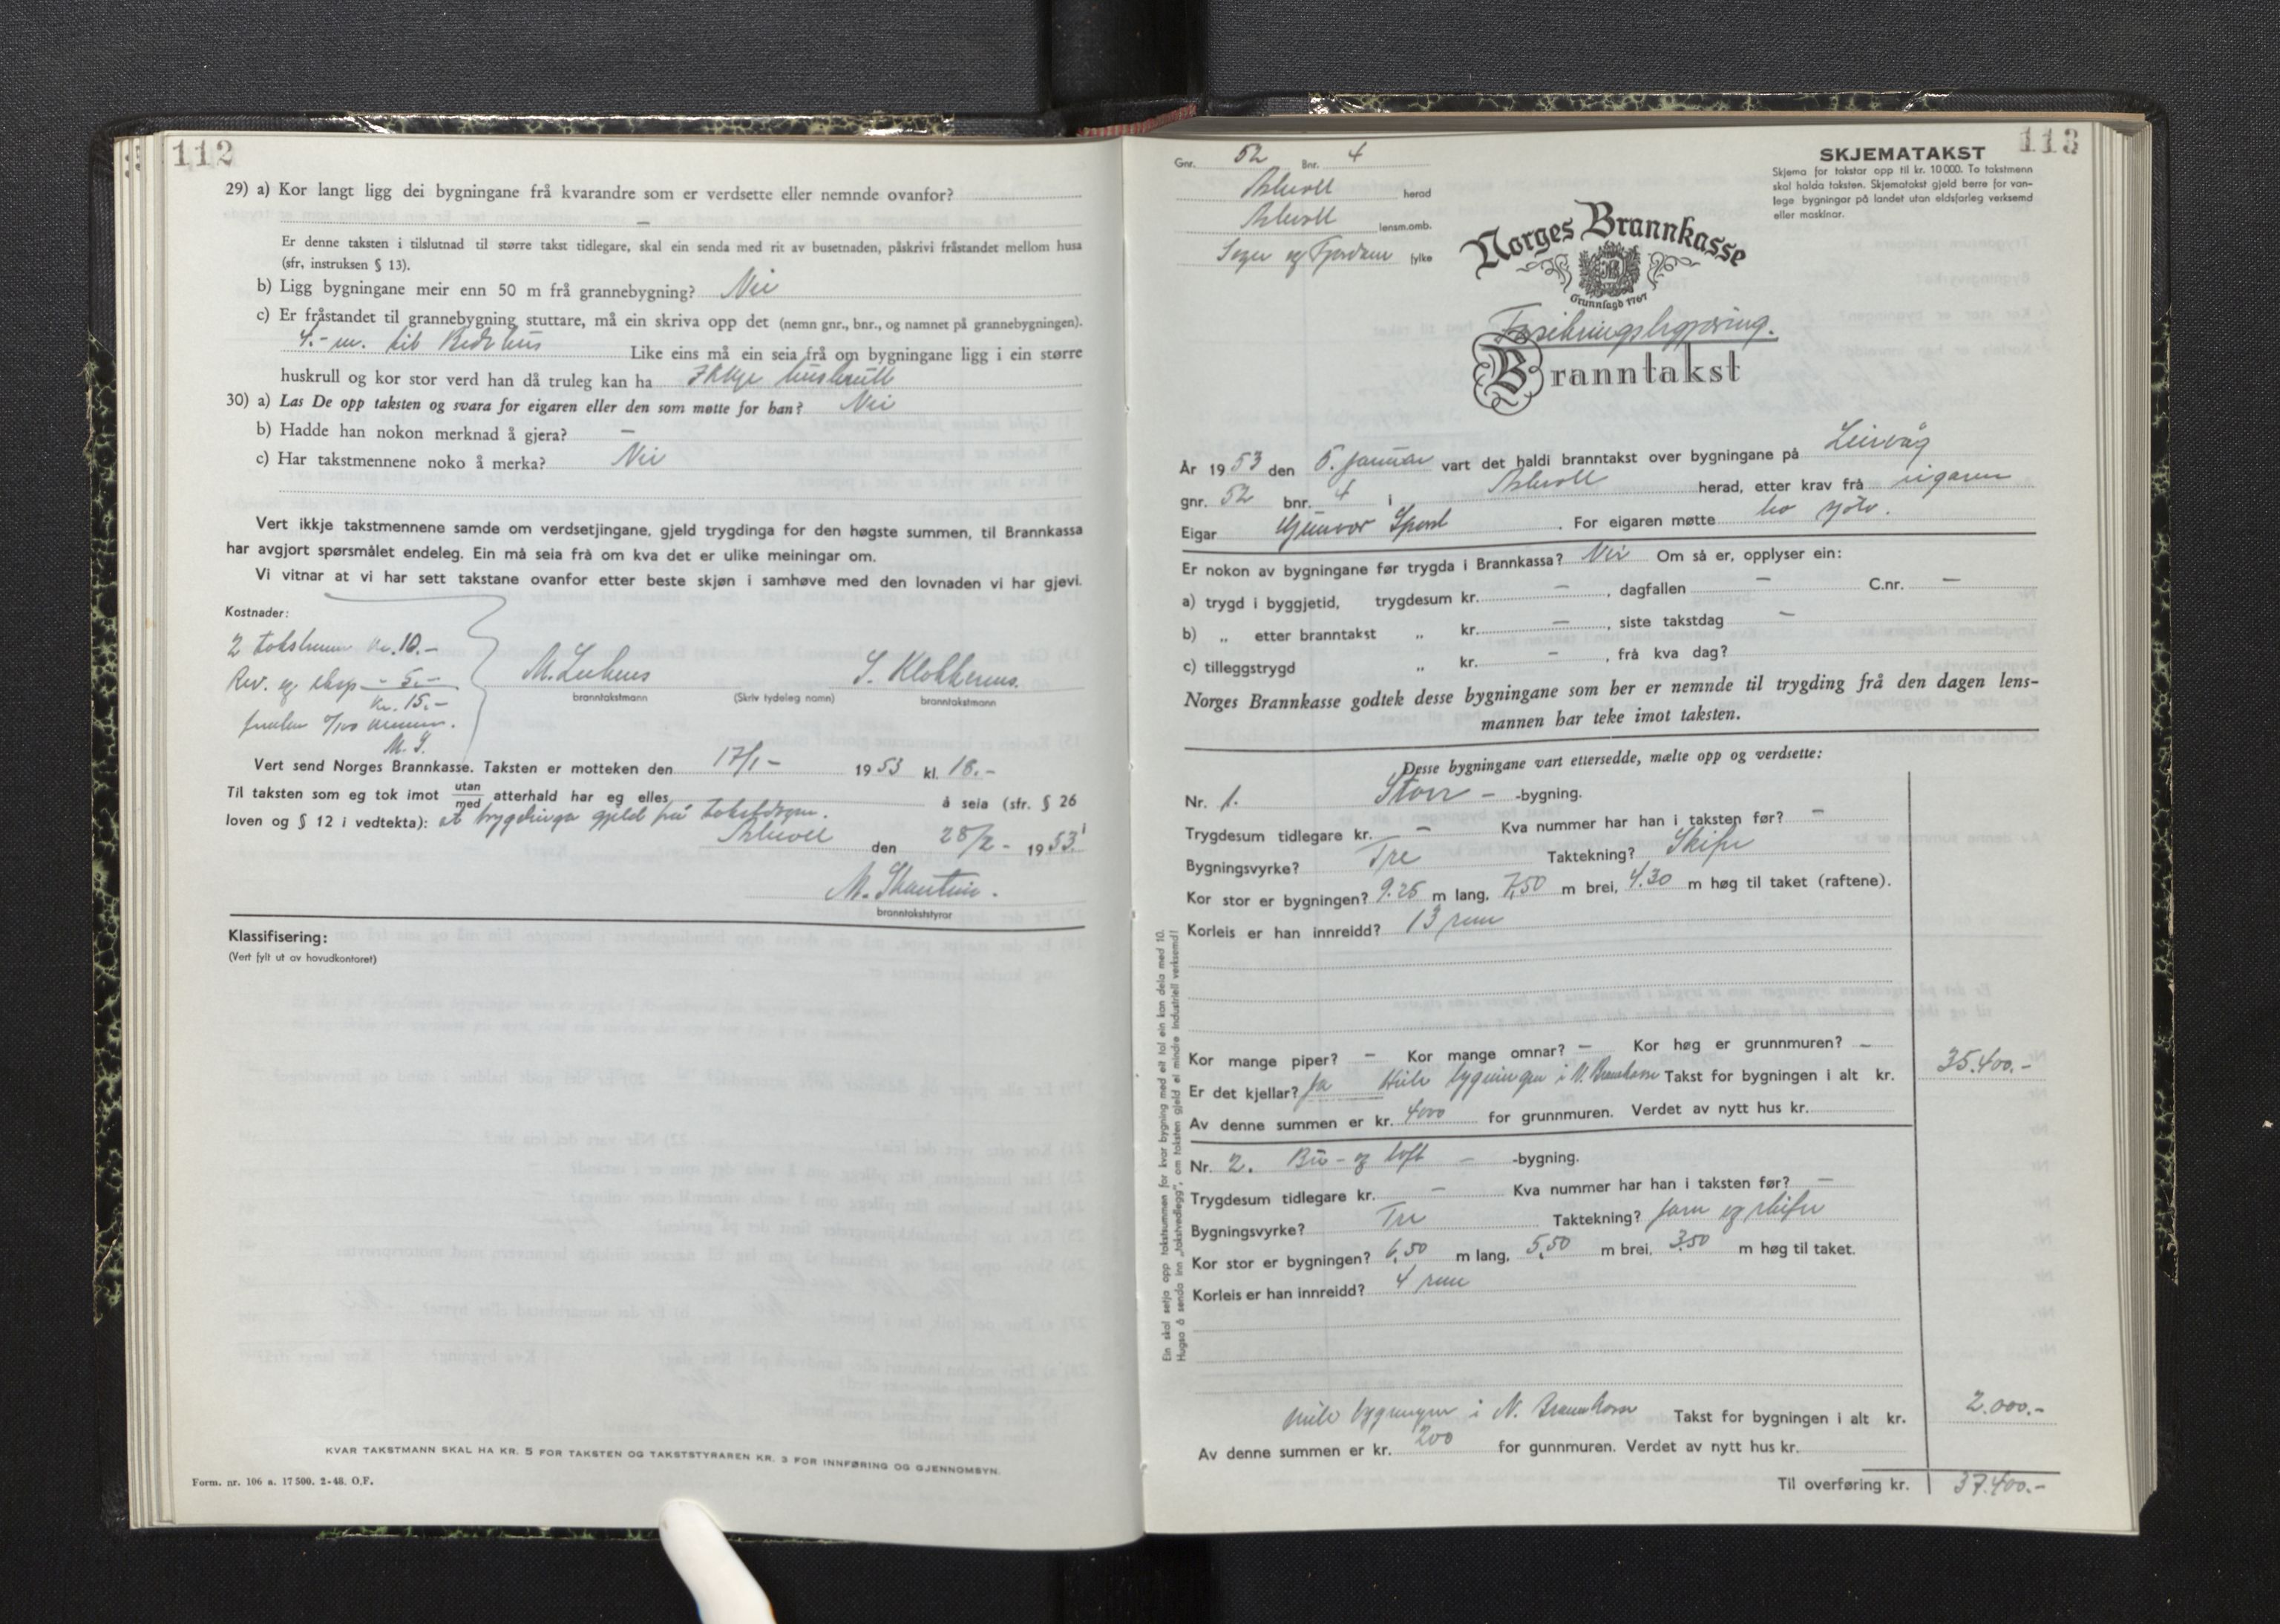 112
29) a) Kor langt ligg dei bygningane frå kvarandre som er verdsette eller nemnde ovanfor?
—
Er denne taksten i tilslutnad til større takst tidlegare, skal ein senda med rit av busetnaden, påskrivi fråstandet mellom husa
(sfr. instruksen § 13).
b) Ligg bygningane meir enn 50 m frå grannebygning? Nei
c) Er fråstandet til grannebygning stuttare, må ein skriva opp det (nemn gnr., bnr., og namnet på grannebygningen).
4.- m. til Reidshus Like eins må ein seia frå om bygningane ligg i ein større
huskrull og kor stor verd han då truleg kan ha Ikkje huskrull
30) a) Las De opp taksten og svara for eigaren eller den som møtte for han? Nei
b) Hadde han nokon merknad å gjera? —
c) Har takstmennene noko å merka? Nei
Vert ikkje takstmennene samde om verdsetjingane, gjeld trygdinga for den høgste summen, til Brannkassa
har avgjort spørsmålet endeleg. Ein må seia frå om kva det er ulike meiningar om.
Vi vitnar at vi har sett takstane ovanfor etter beste skjøn i samhøve med den lovnaden vi har gjevi.
Kostnader:
2 takstmenn kr. 10.-
Rev. og eksp - 5.-
Kr. 15.-
M. S.
M. Leknes S. Klokkernes.
branntakstmann (Skriv tydeleg namn) branntakstmann
Vert send Norges Brannkasse. Taksten er motteken den 17/1- 1953 kl. 18.-
Til taksten som eg tok imot utan/med atterhald har eg elles å seia (sfr. § 26
loven og § 12 i vedtekta): at trygdinga gjeld frå takstdagen.
Askvoll den 28/2- 1953
M. Skautun.
branntakststyrar
Klassifisering:
(Vert fylt ut av hovudkontoret)
KVAR TAKSTMANN SKAL HA KR. 5 FOR TAKSTEN OG TAKSTSTYRAREN KR. 3 FOR INNFØRING OG GJENNOMSYN.
Form. nr. 106 a. 17 500. 2-48. O.F.
113
Gnr. 52 Bnr. 4
Askvoll herad
Askvoll lensm.omb.
Sogn og Fjordane fylke
SKJEMATAKST
Skjema for takstar opp til kr. 10 000. To takstmenn
skal halda taksten. Skjematakst gjeld berre for van-
lege bygningar på landet utan eldsfarleg verksemd
eller maskinar.
Norges Brannkasse
Grunnlagd 1767
Forsikringsbygjæring.
Branntakst
År 1953 den 6. januar vart det haldi branntakst over bygningane på Leirvåg
gnr. 52 bnr. 4 i Askvoll herad, etter krav frå eigaren
Eigar Gunvor Spord. For eigaren møtte ho sjølv.
Er nokon av bygningane før trygda i Brannkassa? Nei Om så er, opplyser ein:
a) trygd i byggjetid, trygdesum kr. —, dagfallen — C.nr. —
b) „ etter branntakst „ kr. —, siste takstdag —
c) tilleggstrygd „ kr. —, frå kva dag?
Norges Brannkasse godtek desse bygningane som her er nemnde til trygding frå den dagen lens-
mannen har teke imot taksten.
Desse bygningane vart ettersedde, mælte opp og verdsette:
Nr. 1. Stove - -bygning.
Trygdesum tidlegare kr. — Kva nummer har han i taksten før? —
Bygningsvyrke? Tre Taktekning? Skifer
Kor stor er bygningen? 9.25 m lang, 7,50 m brei, 4.30 m høg til taket (raftene).
Korleis er han innreidd? 13 rum
Kor mange piper? — Kor mange omnar? — Kor høg er grunnmuren? —
Er det kjellar? Ja Heile bygningen i N. Brannkasse Takst for bygningen i alt kr. 35.400.-
Av denne summen er kr. 4000 for grunnmuren. Verdet av nytt hus kr.
Nr. 2. Bu- og loft - -bygning.
Trygdesum tidlegare kr. — Kva nummer har han i taksten før? —
Bygningsvyrke? Tre Taktekning? Jarn og skifer
Kor stor er bygningen? 6,50 m lang, 5,50 m brei, 3.50 m høg til taket.
Korleis er han innreidd? 4 rum
Heile bygningen i N. Brannkasse Takst for bygningen i alt kr. 2.000.-
Av denne summen er kr. 200 for gunnmuren. Verdet av nytt hus kr.
Til overføring kr. 37.400.-
Ein skal setja opp takstsummen for kvar bygning med eit tal ein kan dela med 10.
Hugsa å senda inn „takstvedlegg", om taksten gjeld ei mindre industriell verksemd!